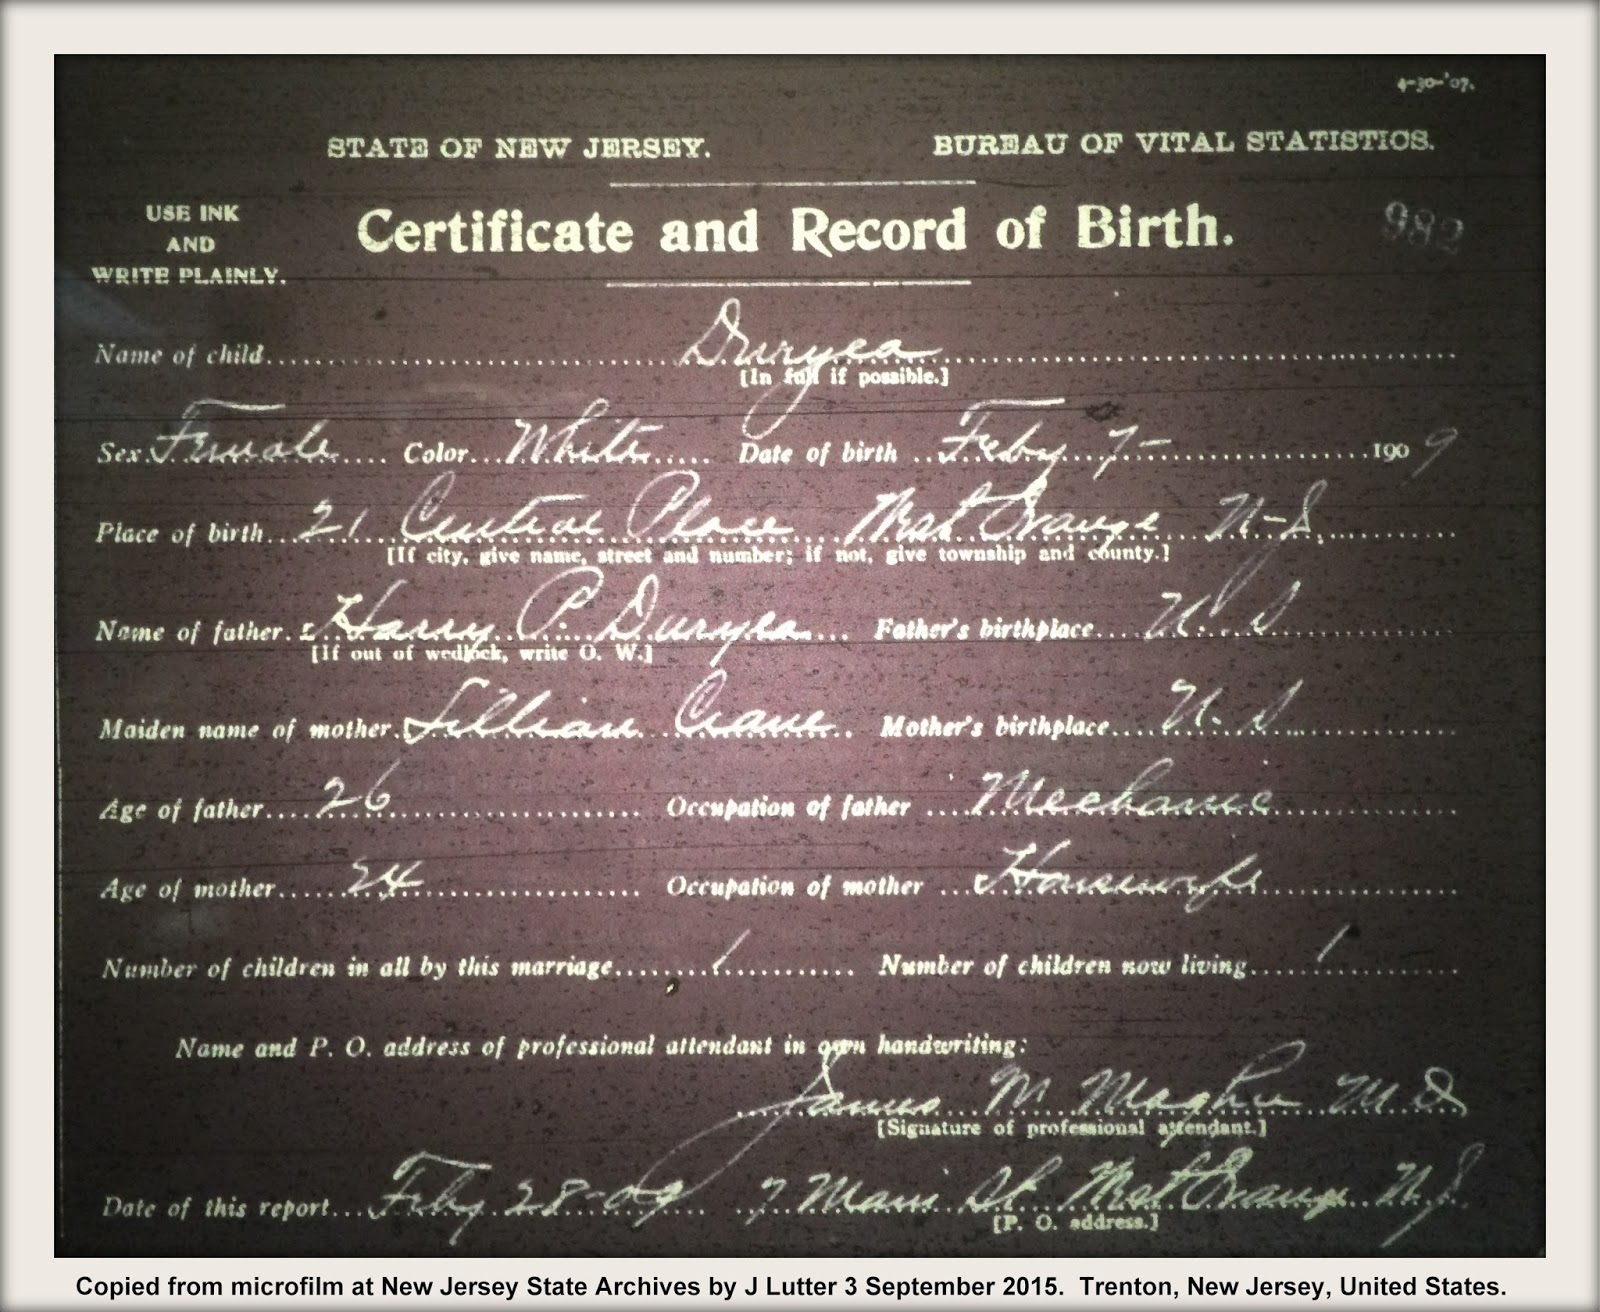 4-30-'07.
STATE OF NEW JERSEY. BUREAU OF VITAL STATISTICS.
USE INK
AND
WRITE PLAINLY.
Certificate and Record of Birth. 982
Name of child Duryea
[In full if possible.]
Sex Female Color White Date of birth Feby 7- 1909
Place of birth 21 Central Place West Orange N-J.
[If city, give name, street and number; if not, give township and county.]
Name of father Harry P. Duryea Father's birthplace U.S
[If out of wedlock, write O. W.]
Maiden name of mother Lillian Crane Mother's birthplace U.S
Age of father 26 Occupation of father Mechanic
Age of mother 24 Occupation of mother Housewife
Number of children in all by this marriage 1 Number of children now living 1
Name and P. O. address of professional attendant in own handwriting:
James M Maghee M D
[Signature of professional attendant.]
Date of this report Feby 28-09 7 Main St. West Orange N.J.
[P. O. address.]
Copied from microfilm at New Jersey State Archives by J Lutter 3 September 2015. Trenton, New Jersey, United States.